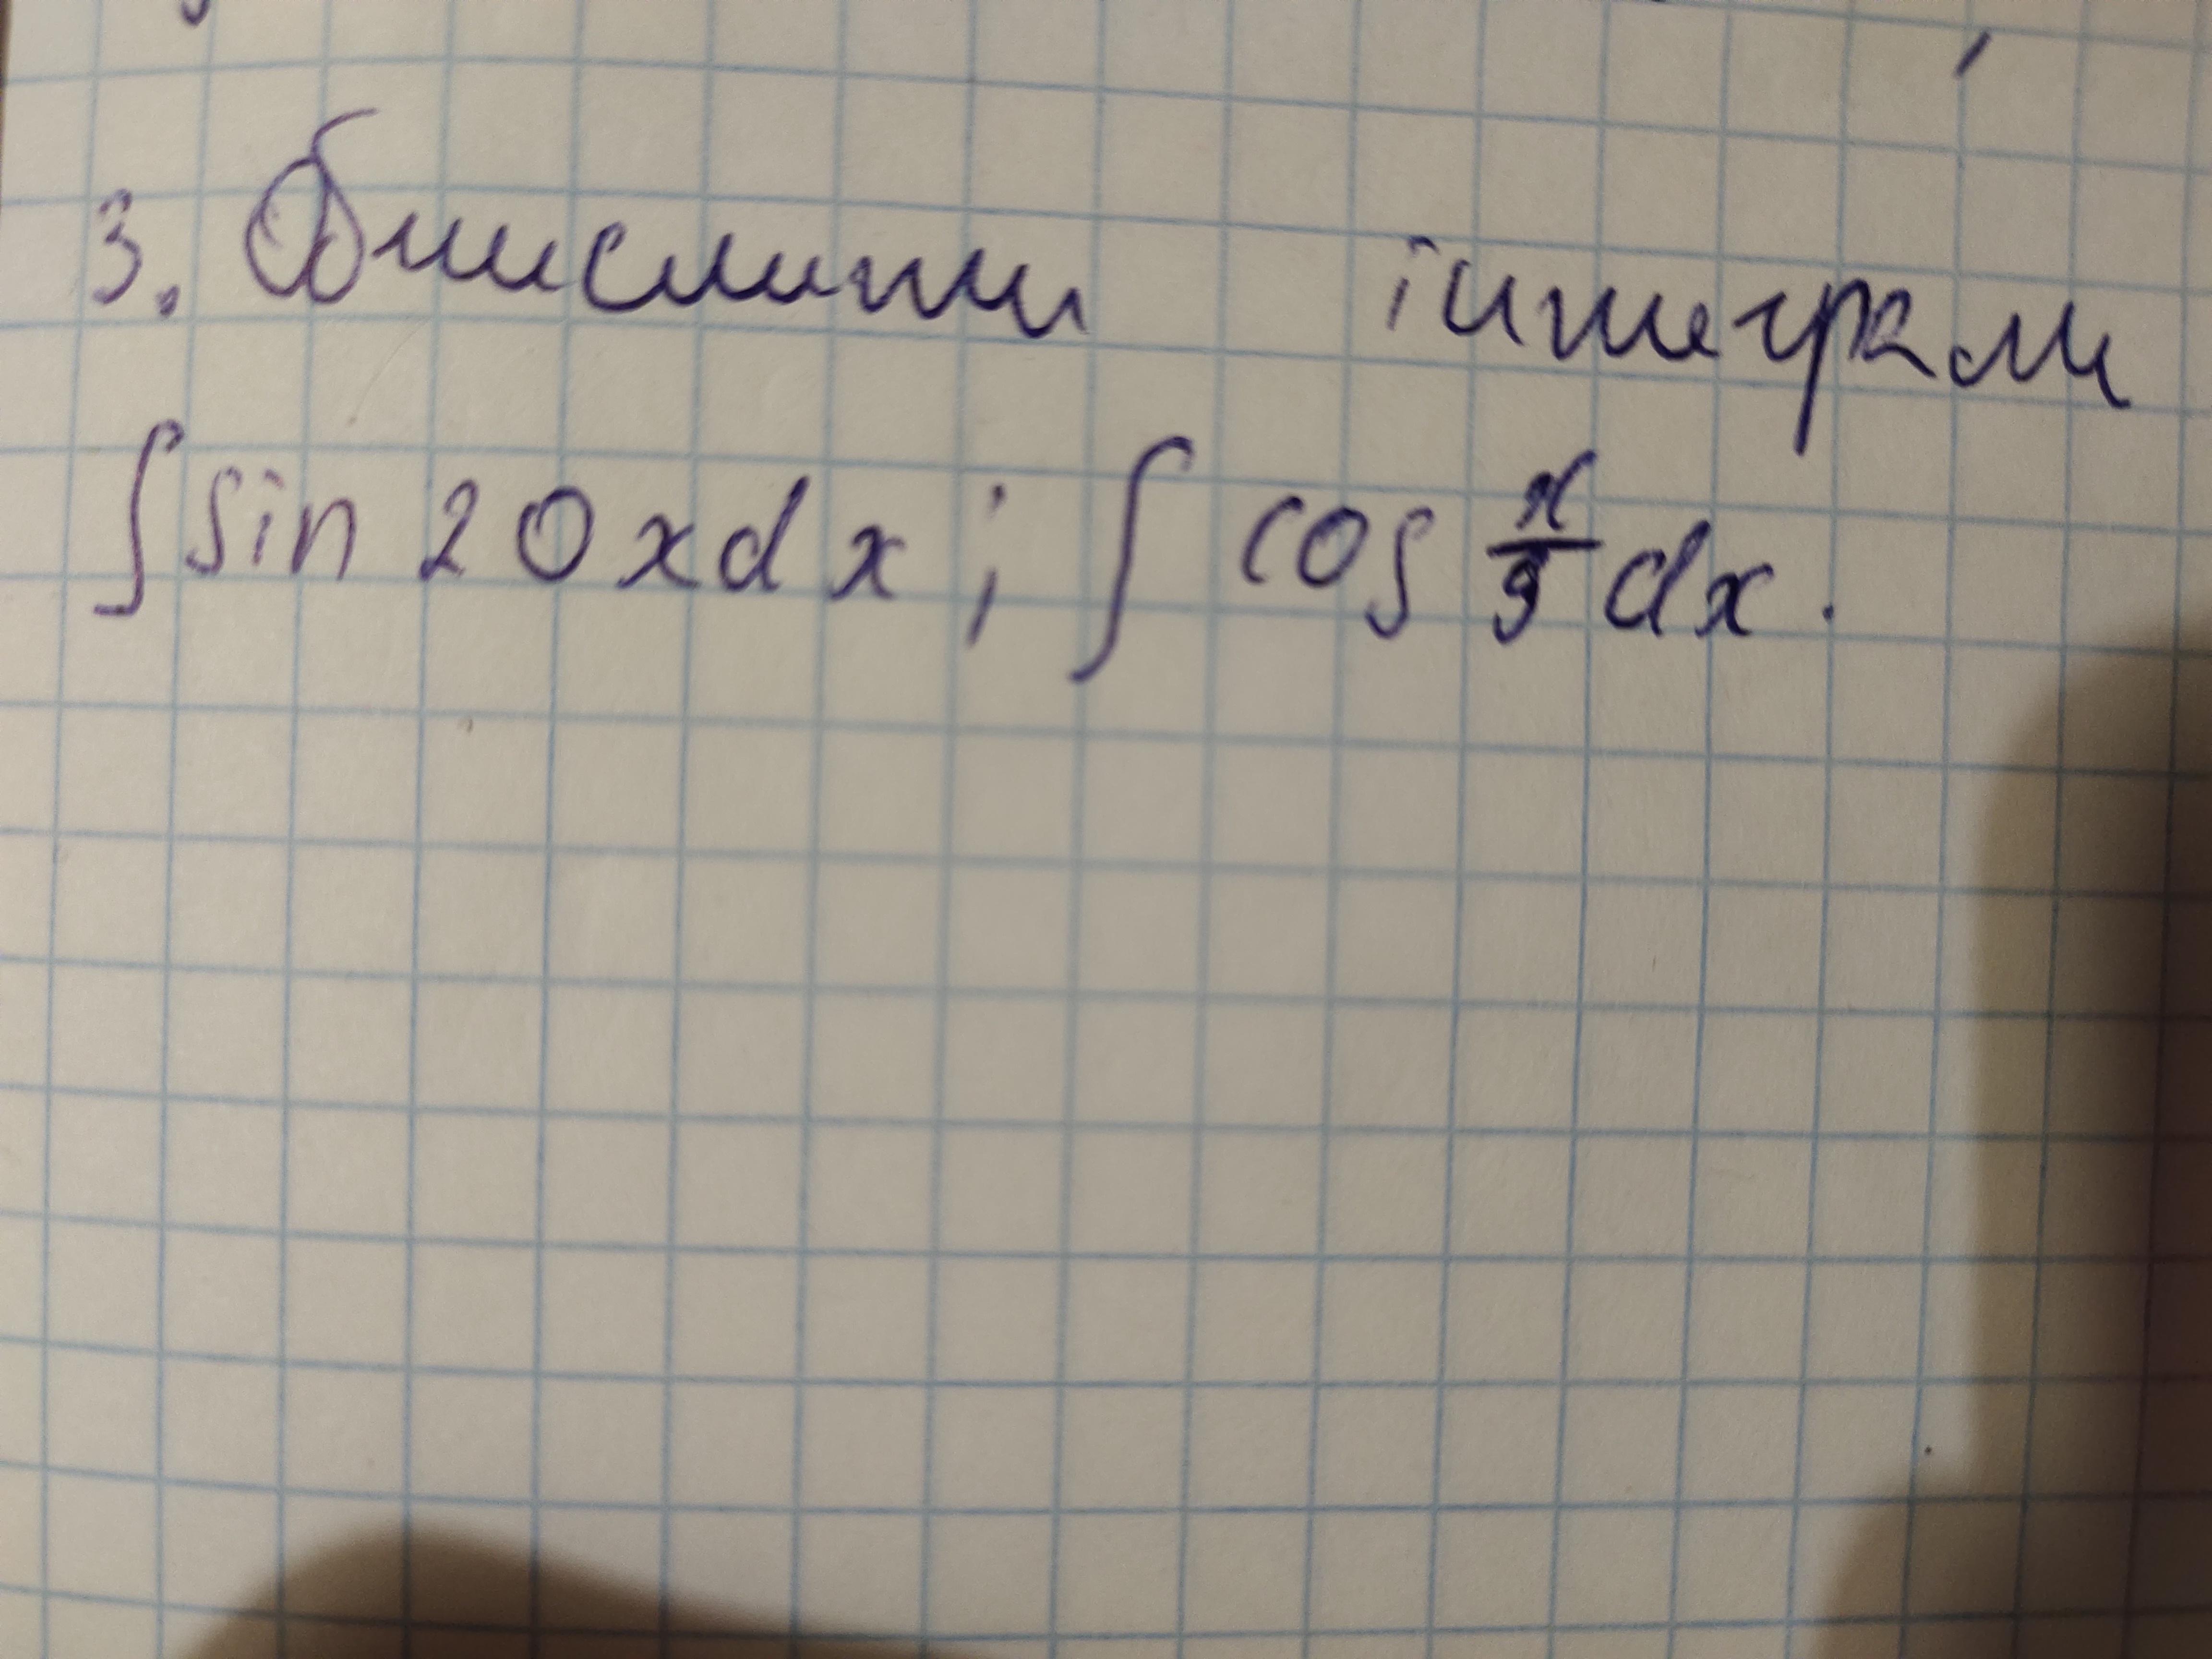 3. Обчислити інтеграли
∫ sin 20xdx; ∫ cos x/9 dx.